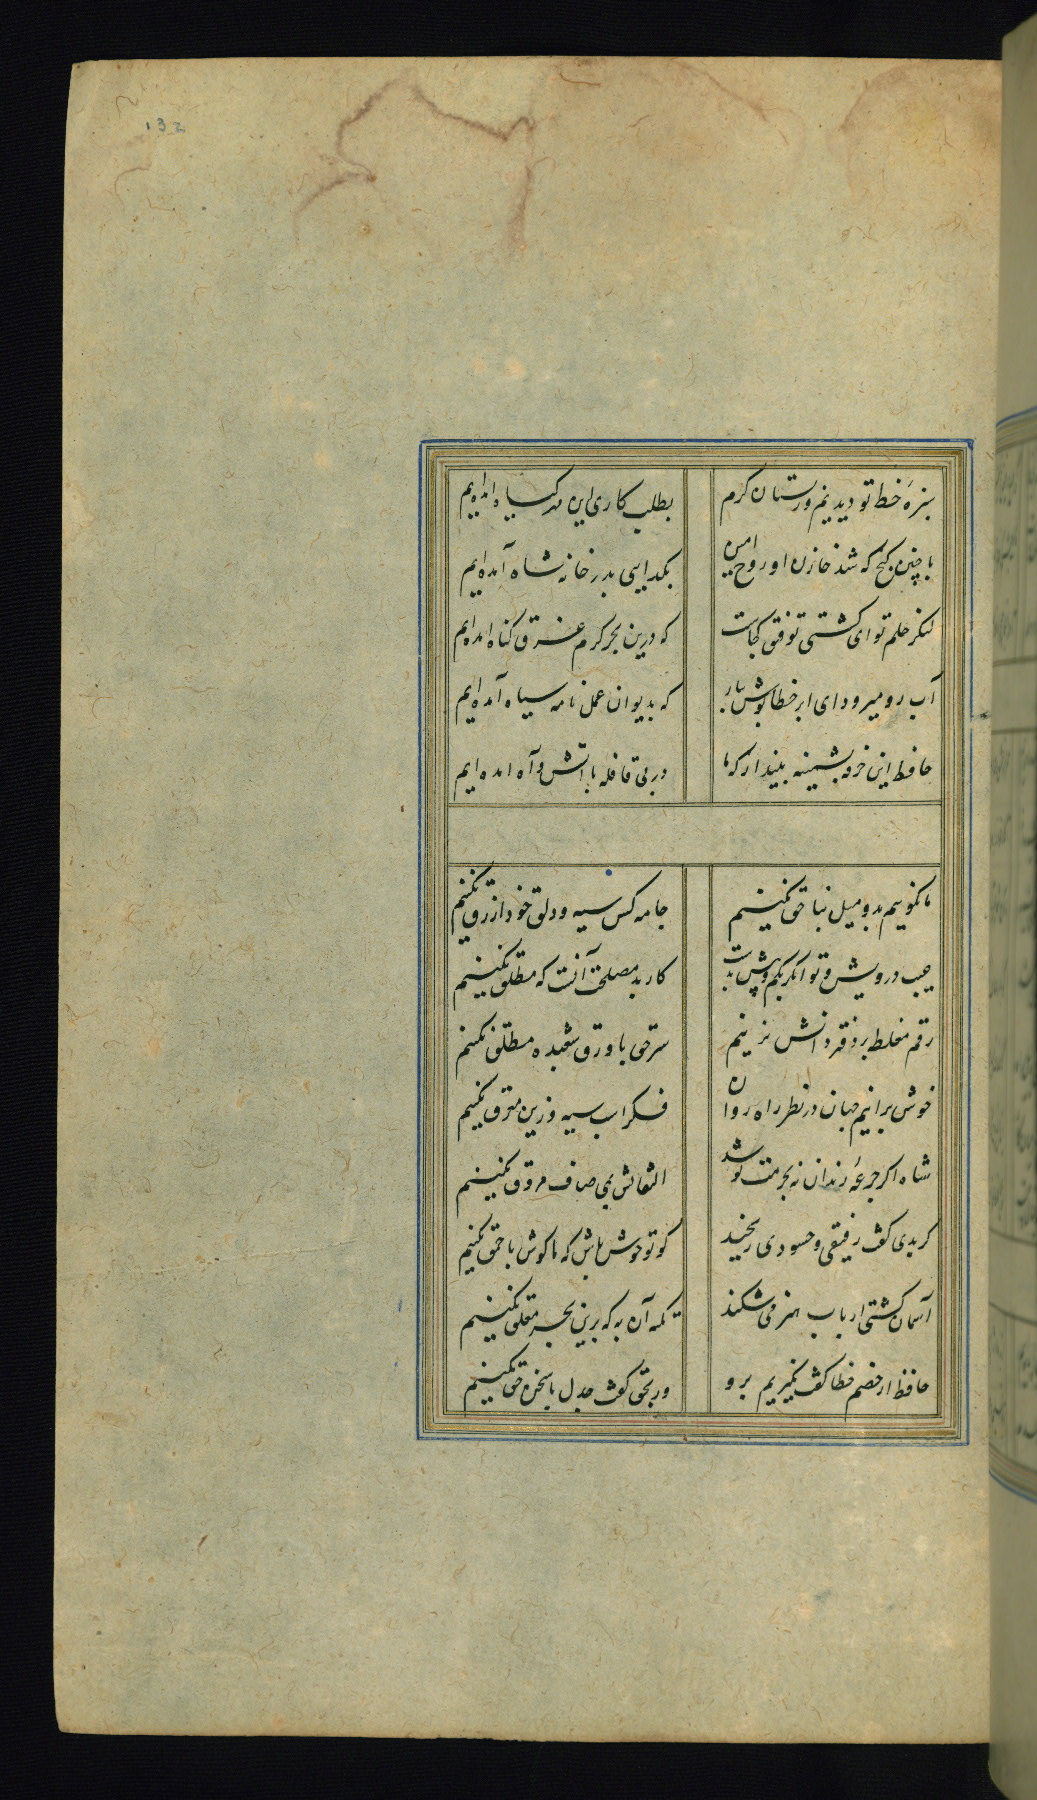 132
سبزهٔ خط تو دیدیم و ز بستان کرم بطلب کاری این مهر کیاه امده ایم
با چنین کنج که شد خازن او روح امین بکدایی بدر خانه شاه آمده ایم
لنکر حلم تو ای کشتی توفیق کجاست که درین بحر کرم غرق کناه امده ایم
آب رو میرود ای ابر خطاپوش ببار که بدیوان عمل نامه سیاه آمده ایم
حافظ این خرقه پشمینه بینداز که ما در پی قافله با آتش و آه امده ایم
ما نکوییم بد و میل بناحق نکنیم جامه کس سیه و دلق خود ازرق نکنیم
عیب درویش و توانکر بکم و بیش بدست کار بد مصلحت آنست که مطلق نکنیم
رقم مغلطه بر دفتر دانش نزنیم سر حق با ورق شعبده ملحق نکنیم
خوش برانیم جهان در نظر راه روان فکر اسب سیه و زین مغرق نکنیم
شاه اکر جرعهٔ رندان نه بحرمت نوشد التفاتش بمی صاف مروق نکنیم
کر بدی کفت رفیقی و حسودی رنجید کو تو خوش باش که ما کوش باحمق نکنیم
آسمان کشتی ارباب هنر می شکند تکیه آن به که برین بحر معلق نکنیم
حافظ ار خصم خطا کفت نکیریم برو ور بحق کفت جدل با سخن حق نکنیم